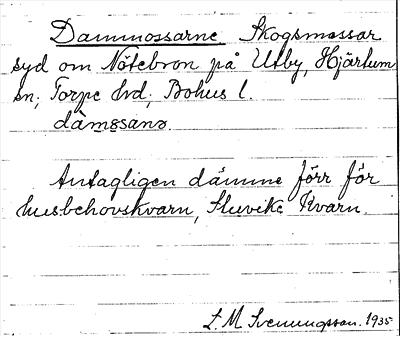 Dammossarne. Skogsmossar
syd om Nötebron på Utby, Hjärtum
sn; Torpe hrd; Bohus l.
dàmåsanə.
Antagligen dämme förr för
husbehovskvarn, Sluveke Kvarn.
L. M. Svenungsson. 1935